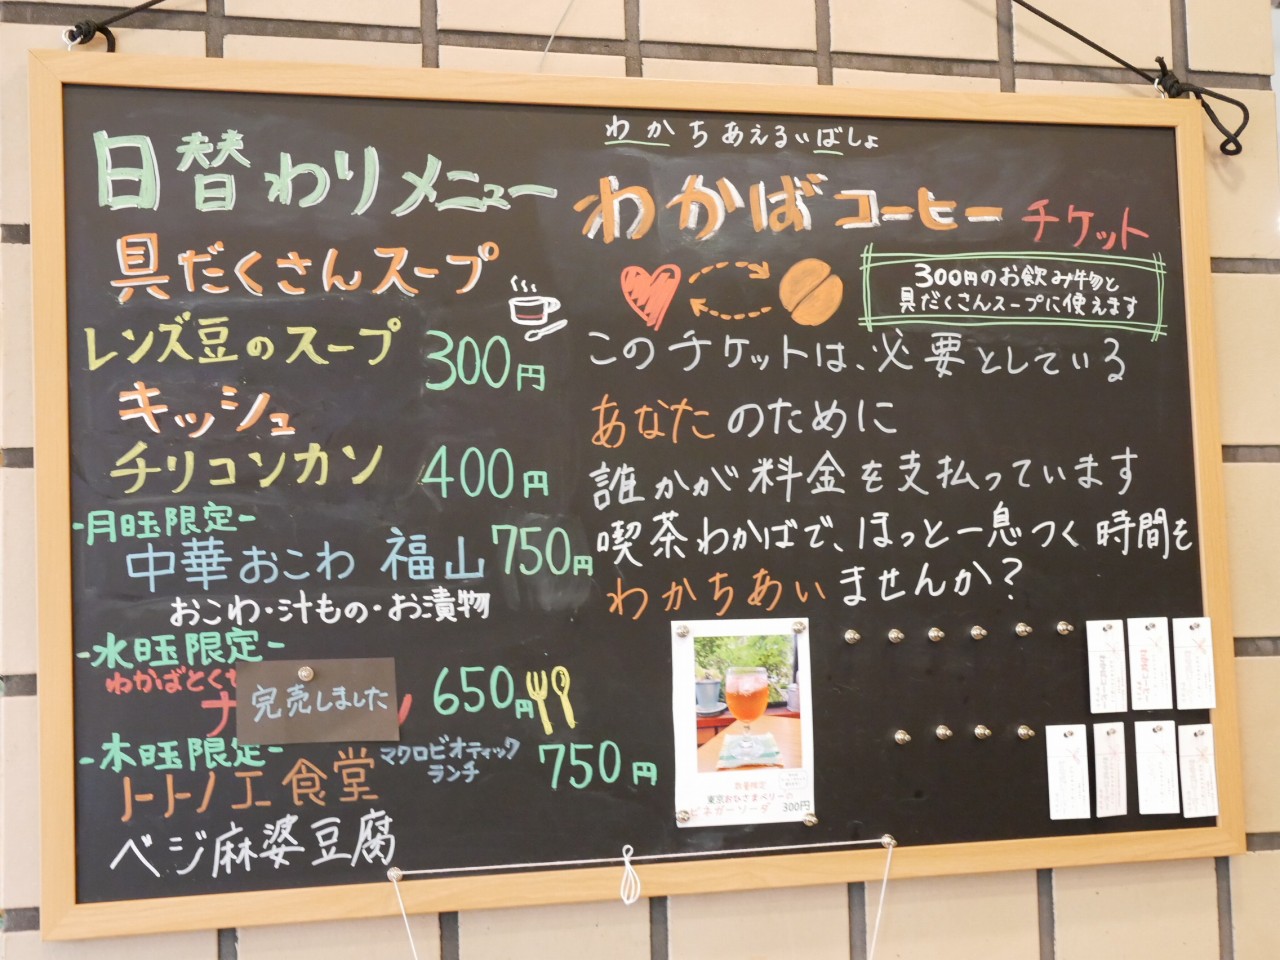 日替わりメニュー
具だくさんスープ
レンズ豆のスープ 300円
キッシュ
チリコンカン 400円
-月曜限定-
中華おこわ 福山 750円
おこわ・汁もの・お漬物
-水曜限定-
わかばとくせ
ナ ン 650円
完売しました
-木曜限定-
トトノエ食堂 マクロビオティック
ランチ 750円
ベジ麻婆豆腐
わかちあえるいばしょ
わかばコーヒーチケット
300円のお飲み物と
具だくさんスープに使えます
このチケットは、必要としている
あなたのために
誰かが料金を支払っています
喫茶わかばで、ほっと一息つく時間を
わかちあいませんか?
数量限定
東京おひさまベリーの
ビネガーソーダ 300円